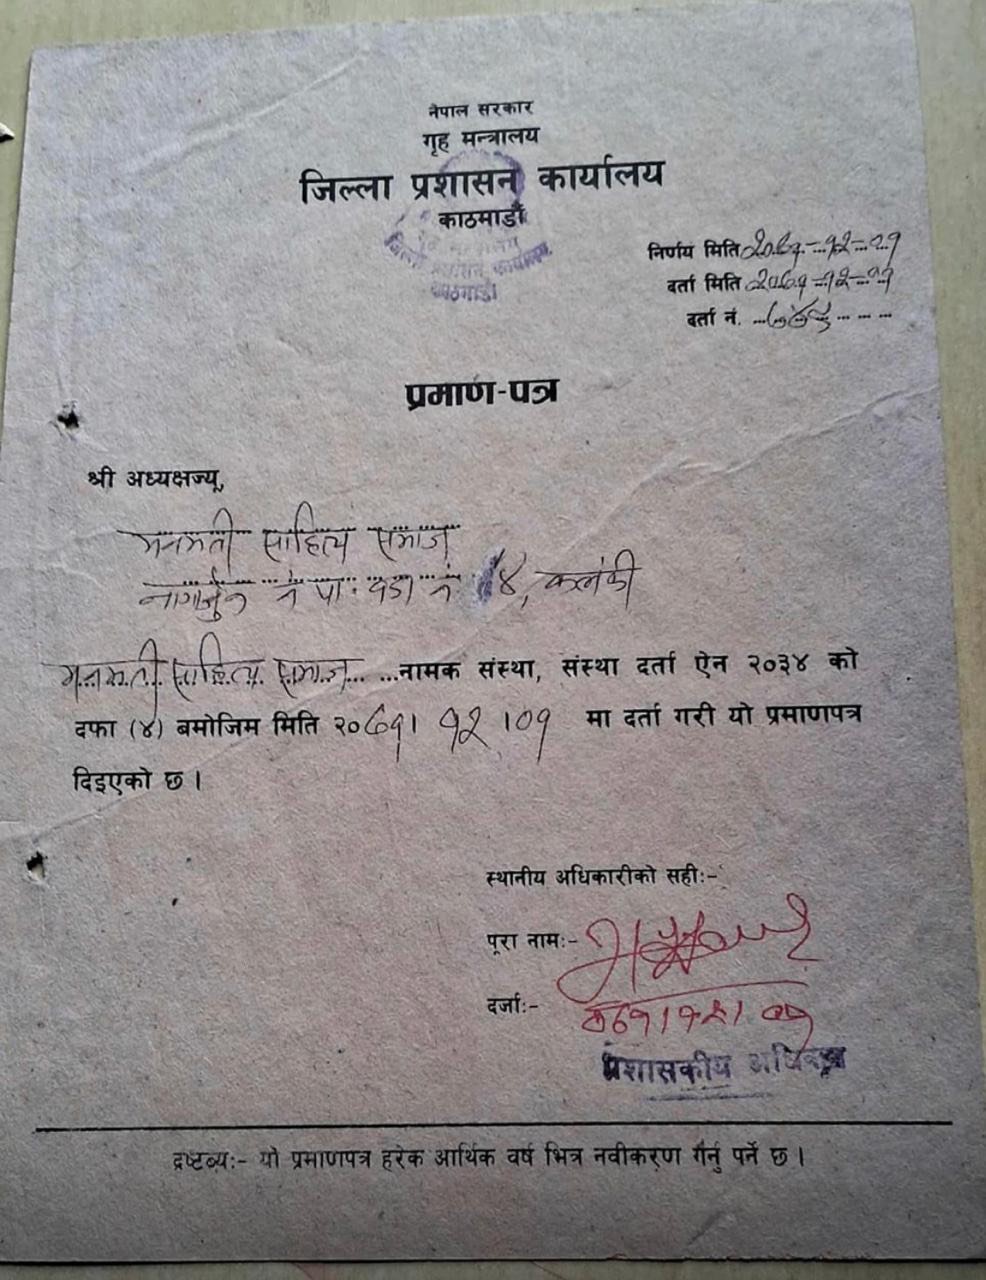 नेपाल सरकार
गृह मन्त्रालय
जिल्ला प्रशासन कार्यालय
काठमाडौं
जिल्ला प्रशासन कार्यालय
काठमाडौं
निर्णय मिति २०७१-१२-०१
दर्ता मिति २०७१-१२-०१
दर्ता नं.
प्रमाण-पत्र
श्री अध्यक्षज्यू,
मनमती साहित्य समाज
नागार्जुन न पा. वडा नं १४, कलंकी
मनमती साहित्य समाज नामक संस्था, संस्था दर्ता ऐन २०३४ को
दफा (४) बमोजिम मिति २०७१। १२ ।०१ मा दर्ता गरी यो प्रमाणपत्र
दिइएको छ ।
स्थानीय अधिकारीको सही:-
पूरा नाम:-
दर्जा:-
२०७१।१२।०१
प्रशासकीय अधिकृत
द्रष्टब्य:- यो प्रमाणपत्र हरेक आर्थिक वर्ष भित्र नवीकरण गर्नु पर्ने छ ।